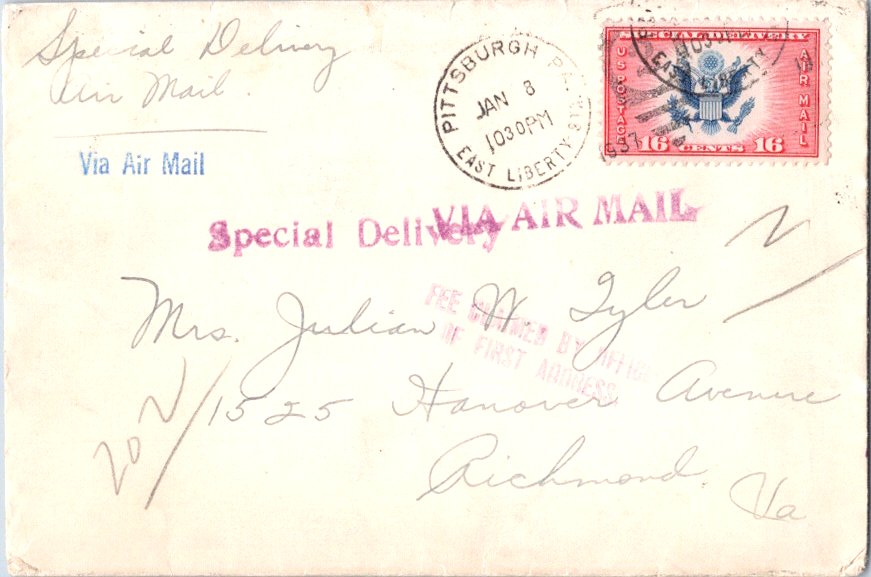 Special Delivery
Air Mail.
Via Air Mail
PITTSBURGH PA.
JAN 8
1030PM
EAST LIBERTY STA.
SPECIAL DELIVERY
U S POSTAGE
AIR MAIL
16 CENTS 16
1030
EAST LIBERTY
1937
Special Delivery
VIA AIR MAIL
FEE CLAIMED BY OFFICE
OF FIRST ADDRESS.
Mrs. Julian W. Tyler
1525 Hanover Avenue
Richmond.
Va